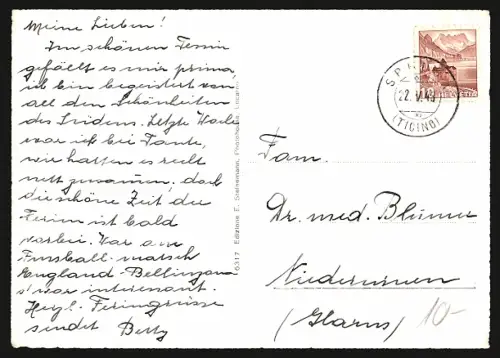 Meine Lieben!
Im schönen Tessin
gefällt es mir prima,
ich bin begeistert von
all den Schönheiten
des Südens. Letzte Woche
war ich bei Tante,
wir hatten es recht
nett zusammen, doch
die schöne Zeit der
Ferien ist bald
vorbei. War am
Fussball-match
England-Bellinzona
s'war interessant.
Herzl. Feriengrüsse
sendet Betty
6317 Edizione E. Steinemann, Locarno
22. V. 49
(TICINO)
Fam.
Dr. med. Blumer
Niederurnen
(Glarus)
10-